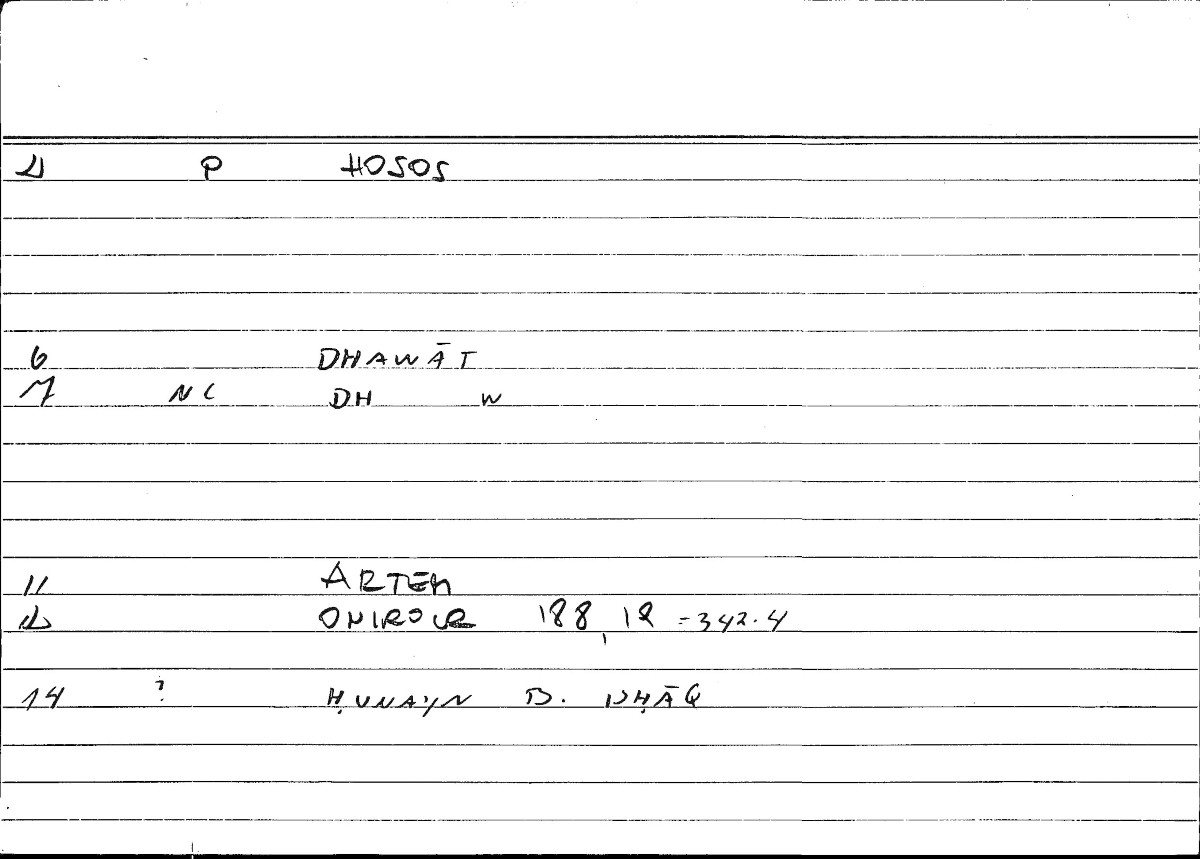 1 P HOSOS
6 DHAWĀT
7 NC DH W
11 ARTEM
12 ONIROCR 188,18 =342.4
14 ? ḤUNAYN B. ISḤĀQ